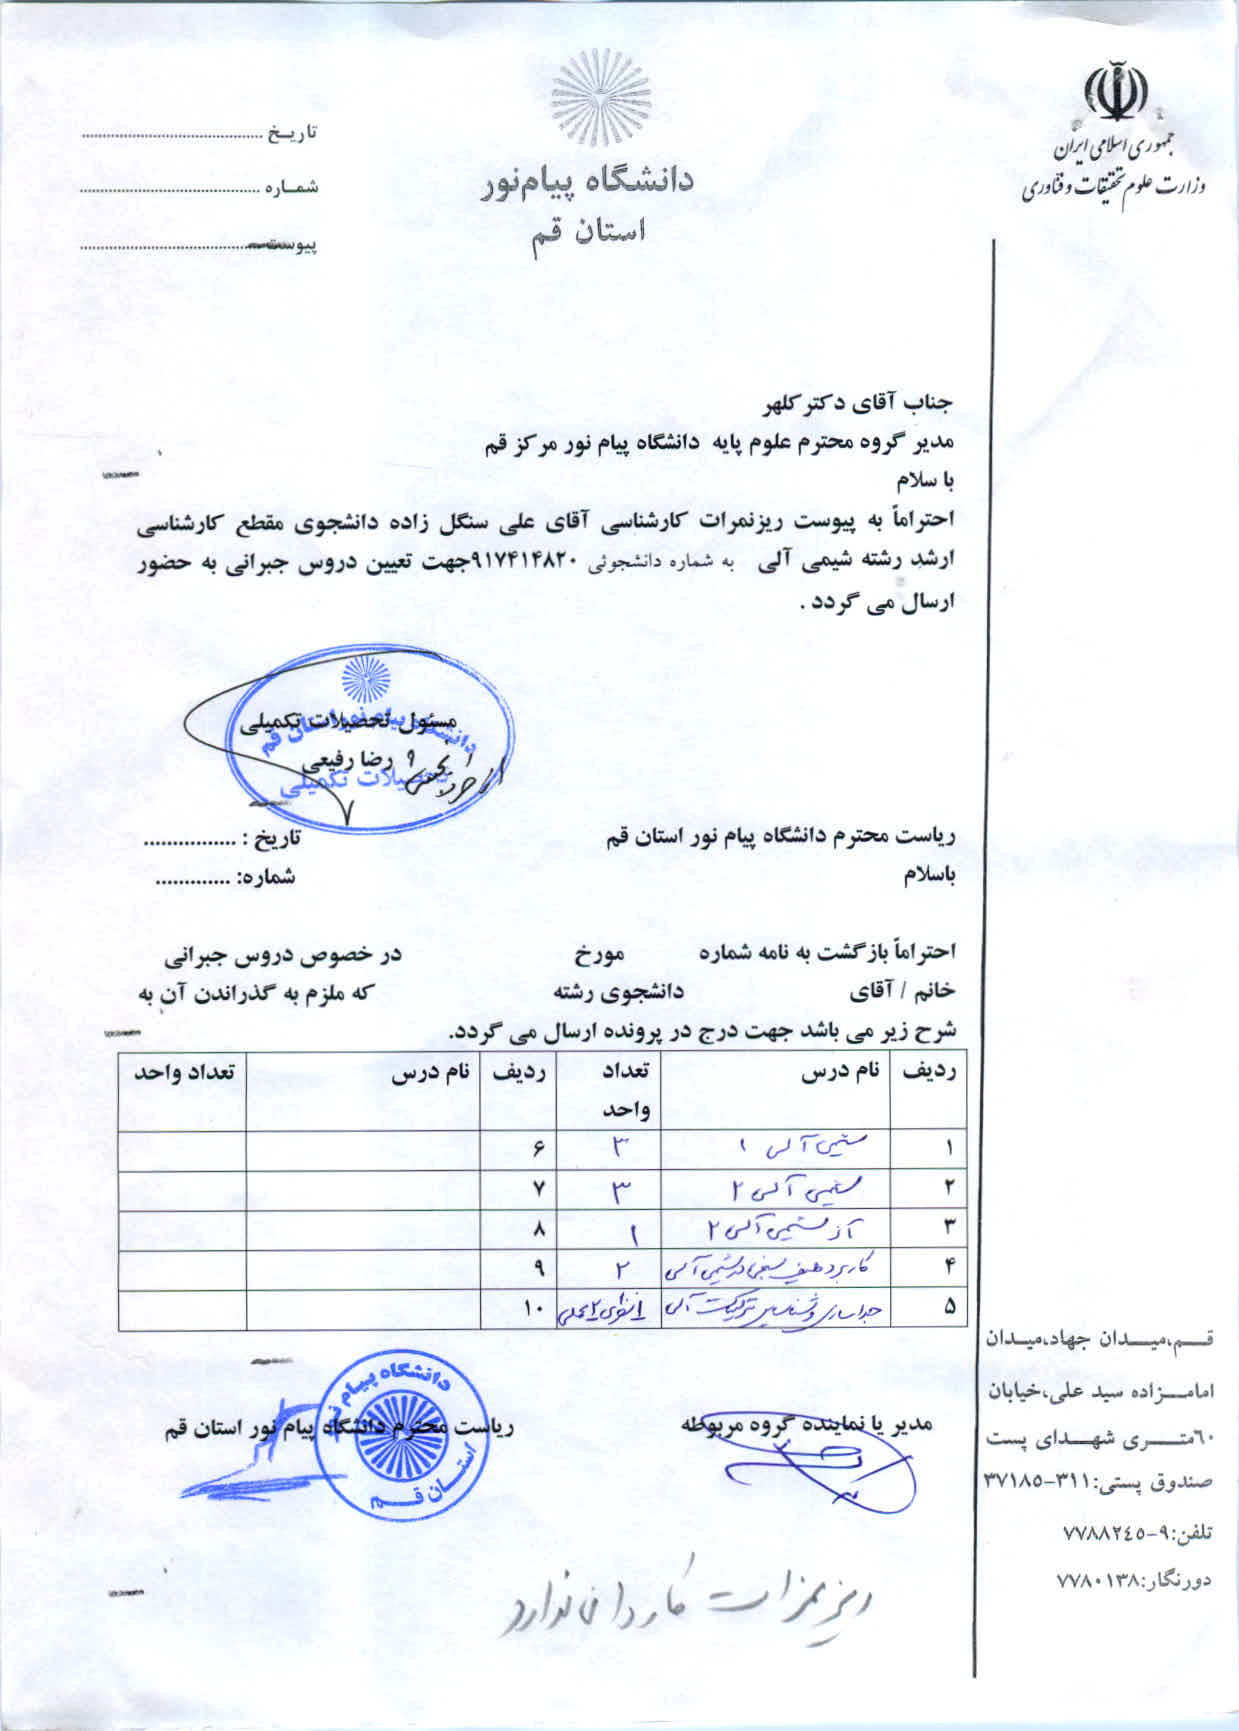 جمهوری اسلامی ایران
وزارت علوم تحقیقات و فناوری
دانشگاه پیام‌نور
استان قم
تاریـخ ............................................
شمـاره ............................................
پیوست ............................................
جناب آقای دکتر کلهر
مدیر گروه محترم علوم پایه دانشگاه پیام نور مرکز قم
با سلام
احتراماً به پیوست ریزنمرات کارشناسی آقای علی سنگل زاده دانشجوی مقطع کارشناسی
ارشد رشته شیمی آلی به شماره دانشجوئی ۹۱۷۴۱۴۸۲۰جهت تعیین دروس جبرانی به حضور
ارسال می گردد .
مسئول تحصیلات تکمیلی
رضا رفیعی
دانشگاه پیام نور استان قم
تحصیلات تکمیلی
ریاست محترم دانشگاه پیام نور استان قم
تاریخ : ................
باسلام
شماره: .............
احتراماً بازگشت به نامه شماره مورخ در خصوص دروس جبرانی
خانم / آقای دانشجوی رشته که ملزم به گذراندن آن به
شرح زیر می باشد جهت درج در پرونده ارسال می گردد.
ردیف نام درس تعداد واحد ردیف نام درس تعداد واحد
۱ شیمی آلی ۱ ۳ ۶
۲ شیمی آلی ۲ ۳ ۷
۳ آز شیمی آلی ۲ ۱ ۸
۴ کاربرد طیف سنجی در شیمی آلی ۲ ۹
۵ جداسازی و شناسایی ترکیبات آلی ۱نظری ۲عملی ۱۰
مدیر یا نماینده گروه مربوطه
ریاست محترم دانشگاه پیام نور استان قم
دانشگاه پیام نور
استـان قـم
ریز نمرات کاردانی ندارد
قــم،میــدان جهاد،میـدان
امامــزاده سید علی،خیابان
٦٠متــری شهــدای پست
صندوق پستی:٣١١-٣٧١٨٥
تلفن:٩-٧٧٨٨٢٤٥
دورنگار:٧٧٨٠١٣٨